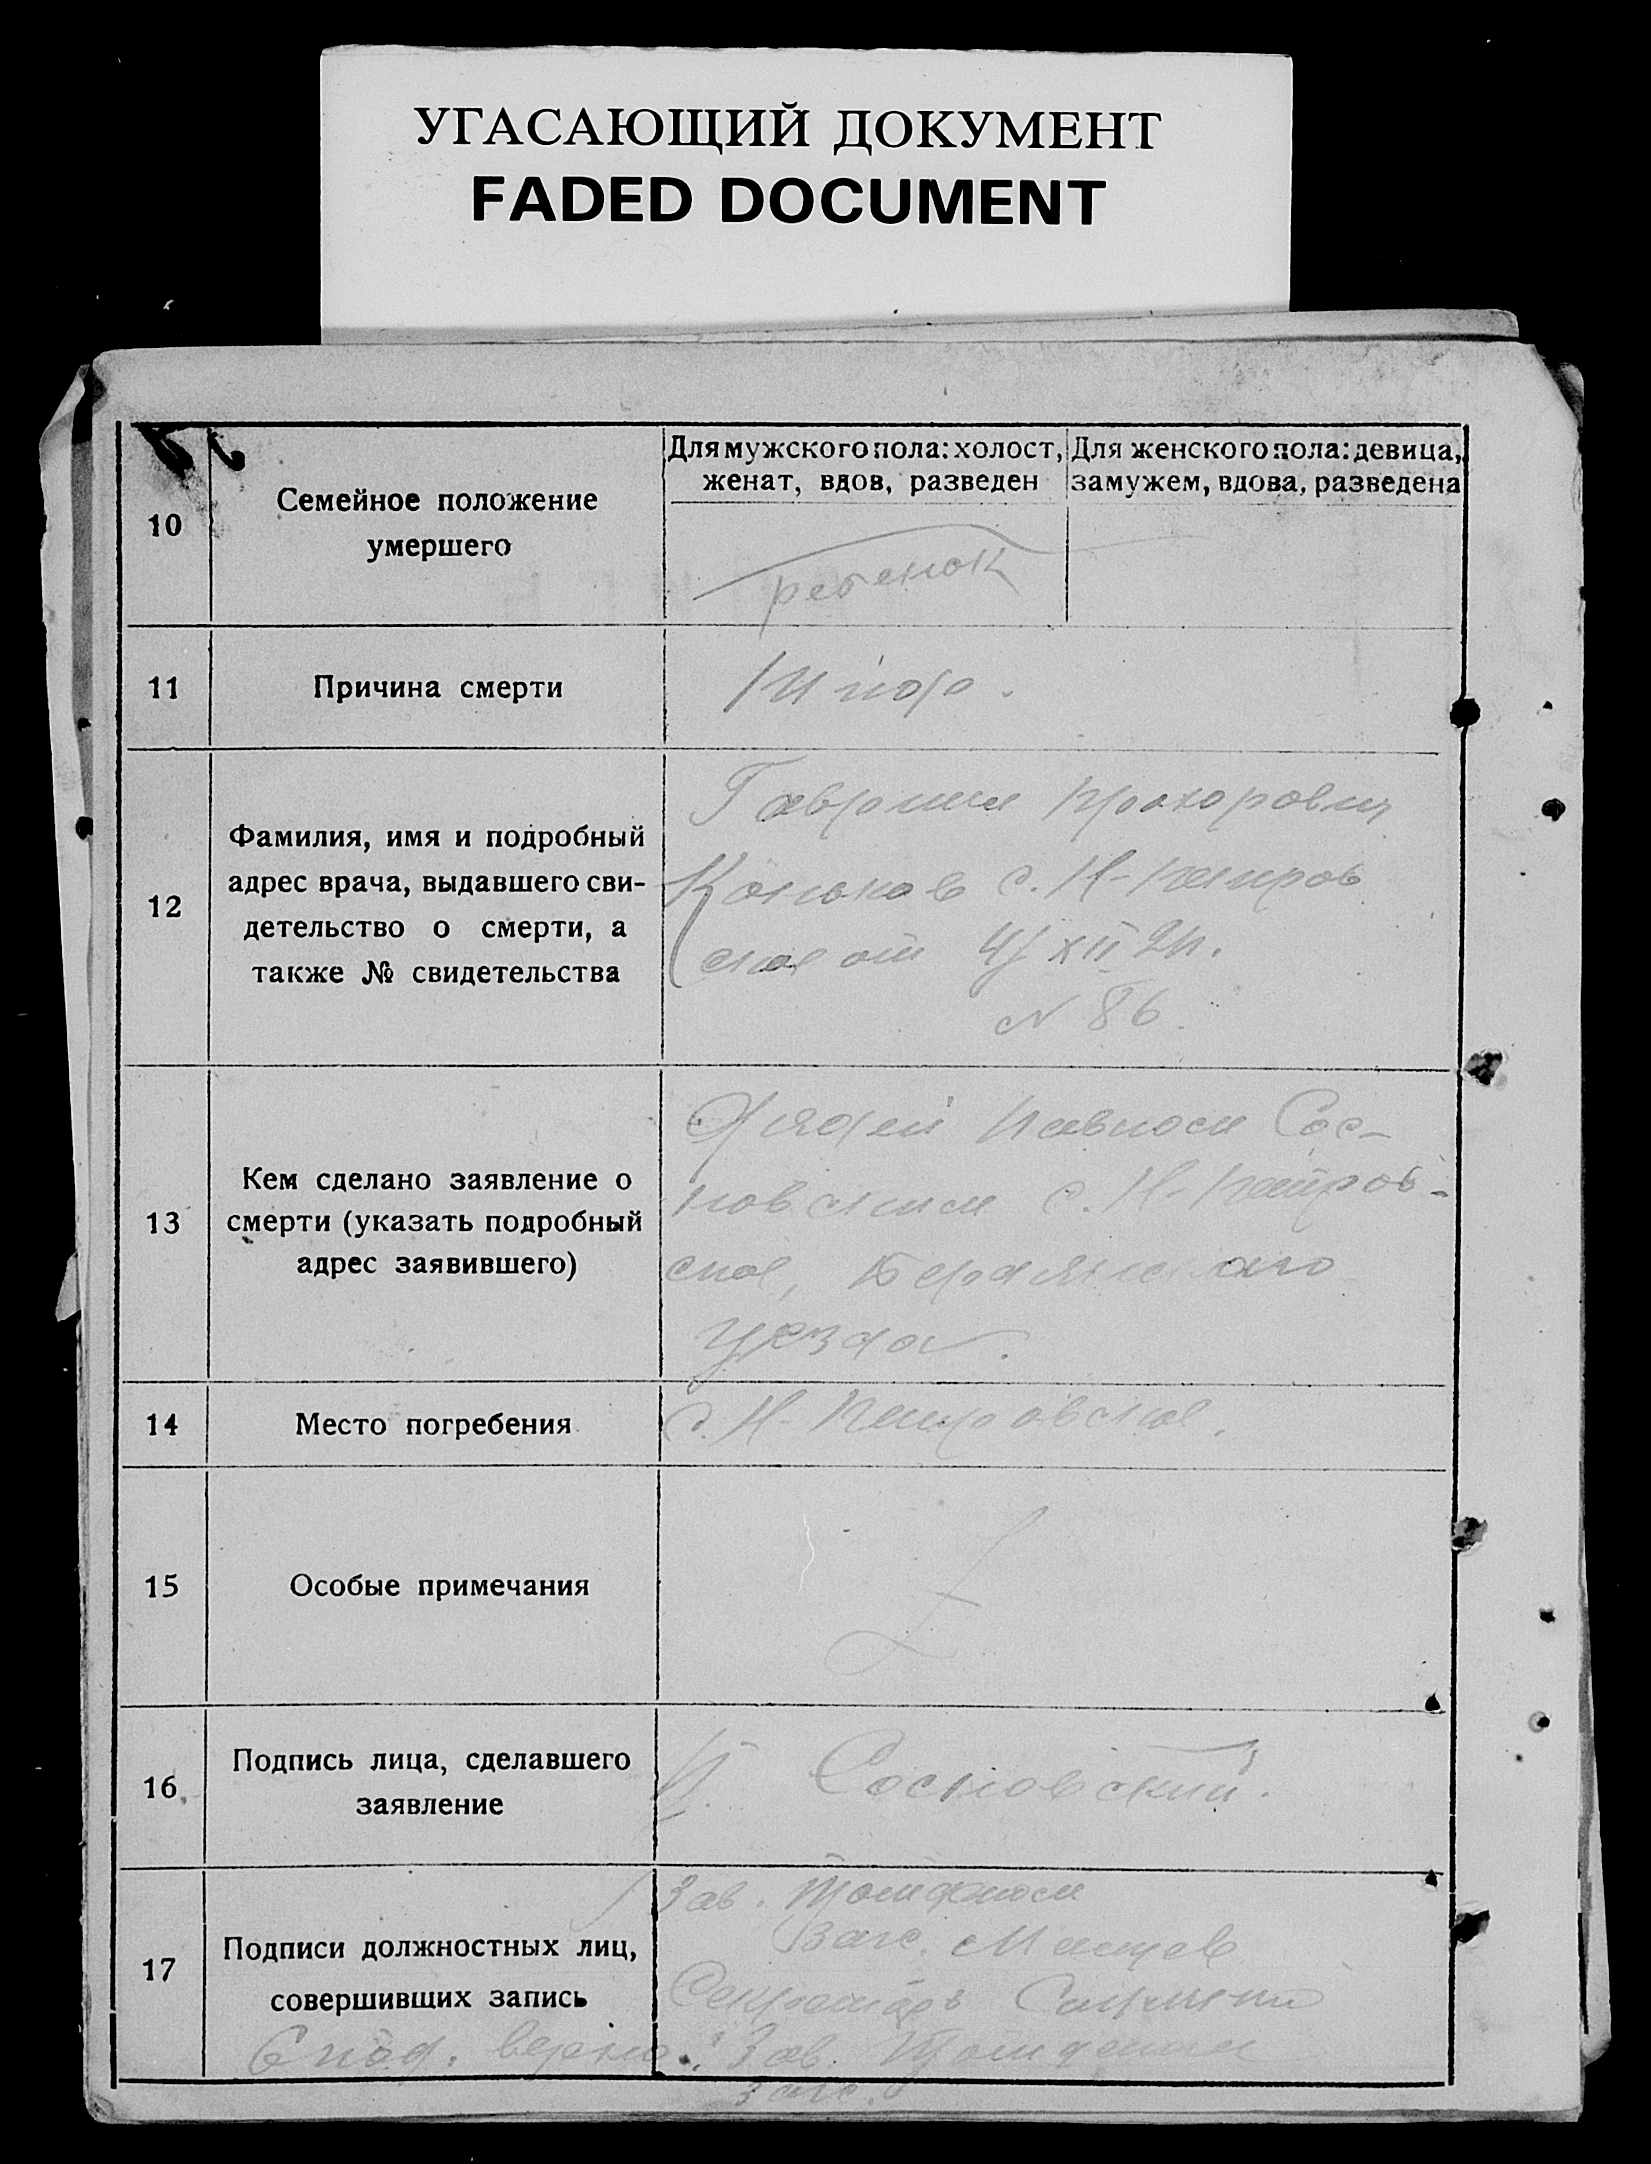 УГАСАЮЩИЙ ДОКУМЕНТ
FADED DOCUMENT
10
Семейное положение
умершего
Для мужского пола: холост,
женат, вдов, разведен
Для женского пола: девица,
замужем, вдова, разведена
ребенок
11
Причина смерти
12
Фамилия, имя и подробный
адрес врача, выдавшего сви-
детельство о смерти, а
также № свидетельства
Гавриил Прохорович
Коньков с. Н-Петров
ское от XII
N 86.
13
Кем сделано заявление о
смерти (указать подробный
адрес заявившего)
Дядей Павлом Сос-
новским с. Н-Петров-
ское, Бердянского
уезда.
14
Место погребения
с. Н-Петровское.
15
Особые примечания
16
Подпись лица, сделавшего
заявление
П. Сосновский.
17
Подписи должностных лиц,
совершивших запись
Зав.
Загс.
Секретарь
С под. верно: Зав.
загс.